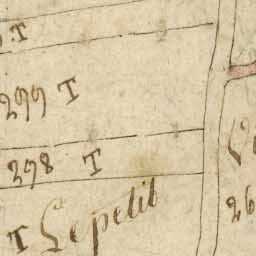 T
299 T
298 T
T Le petit
26